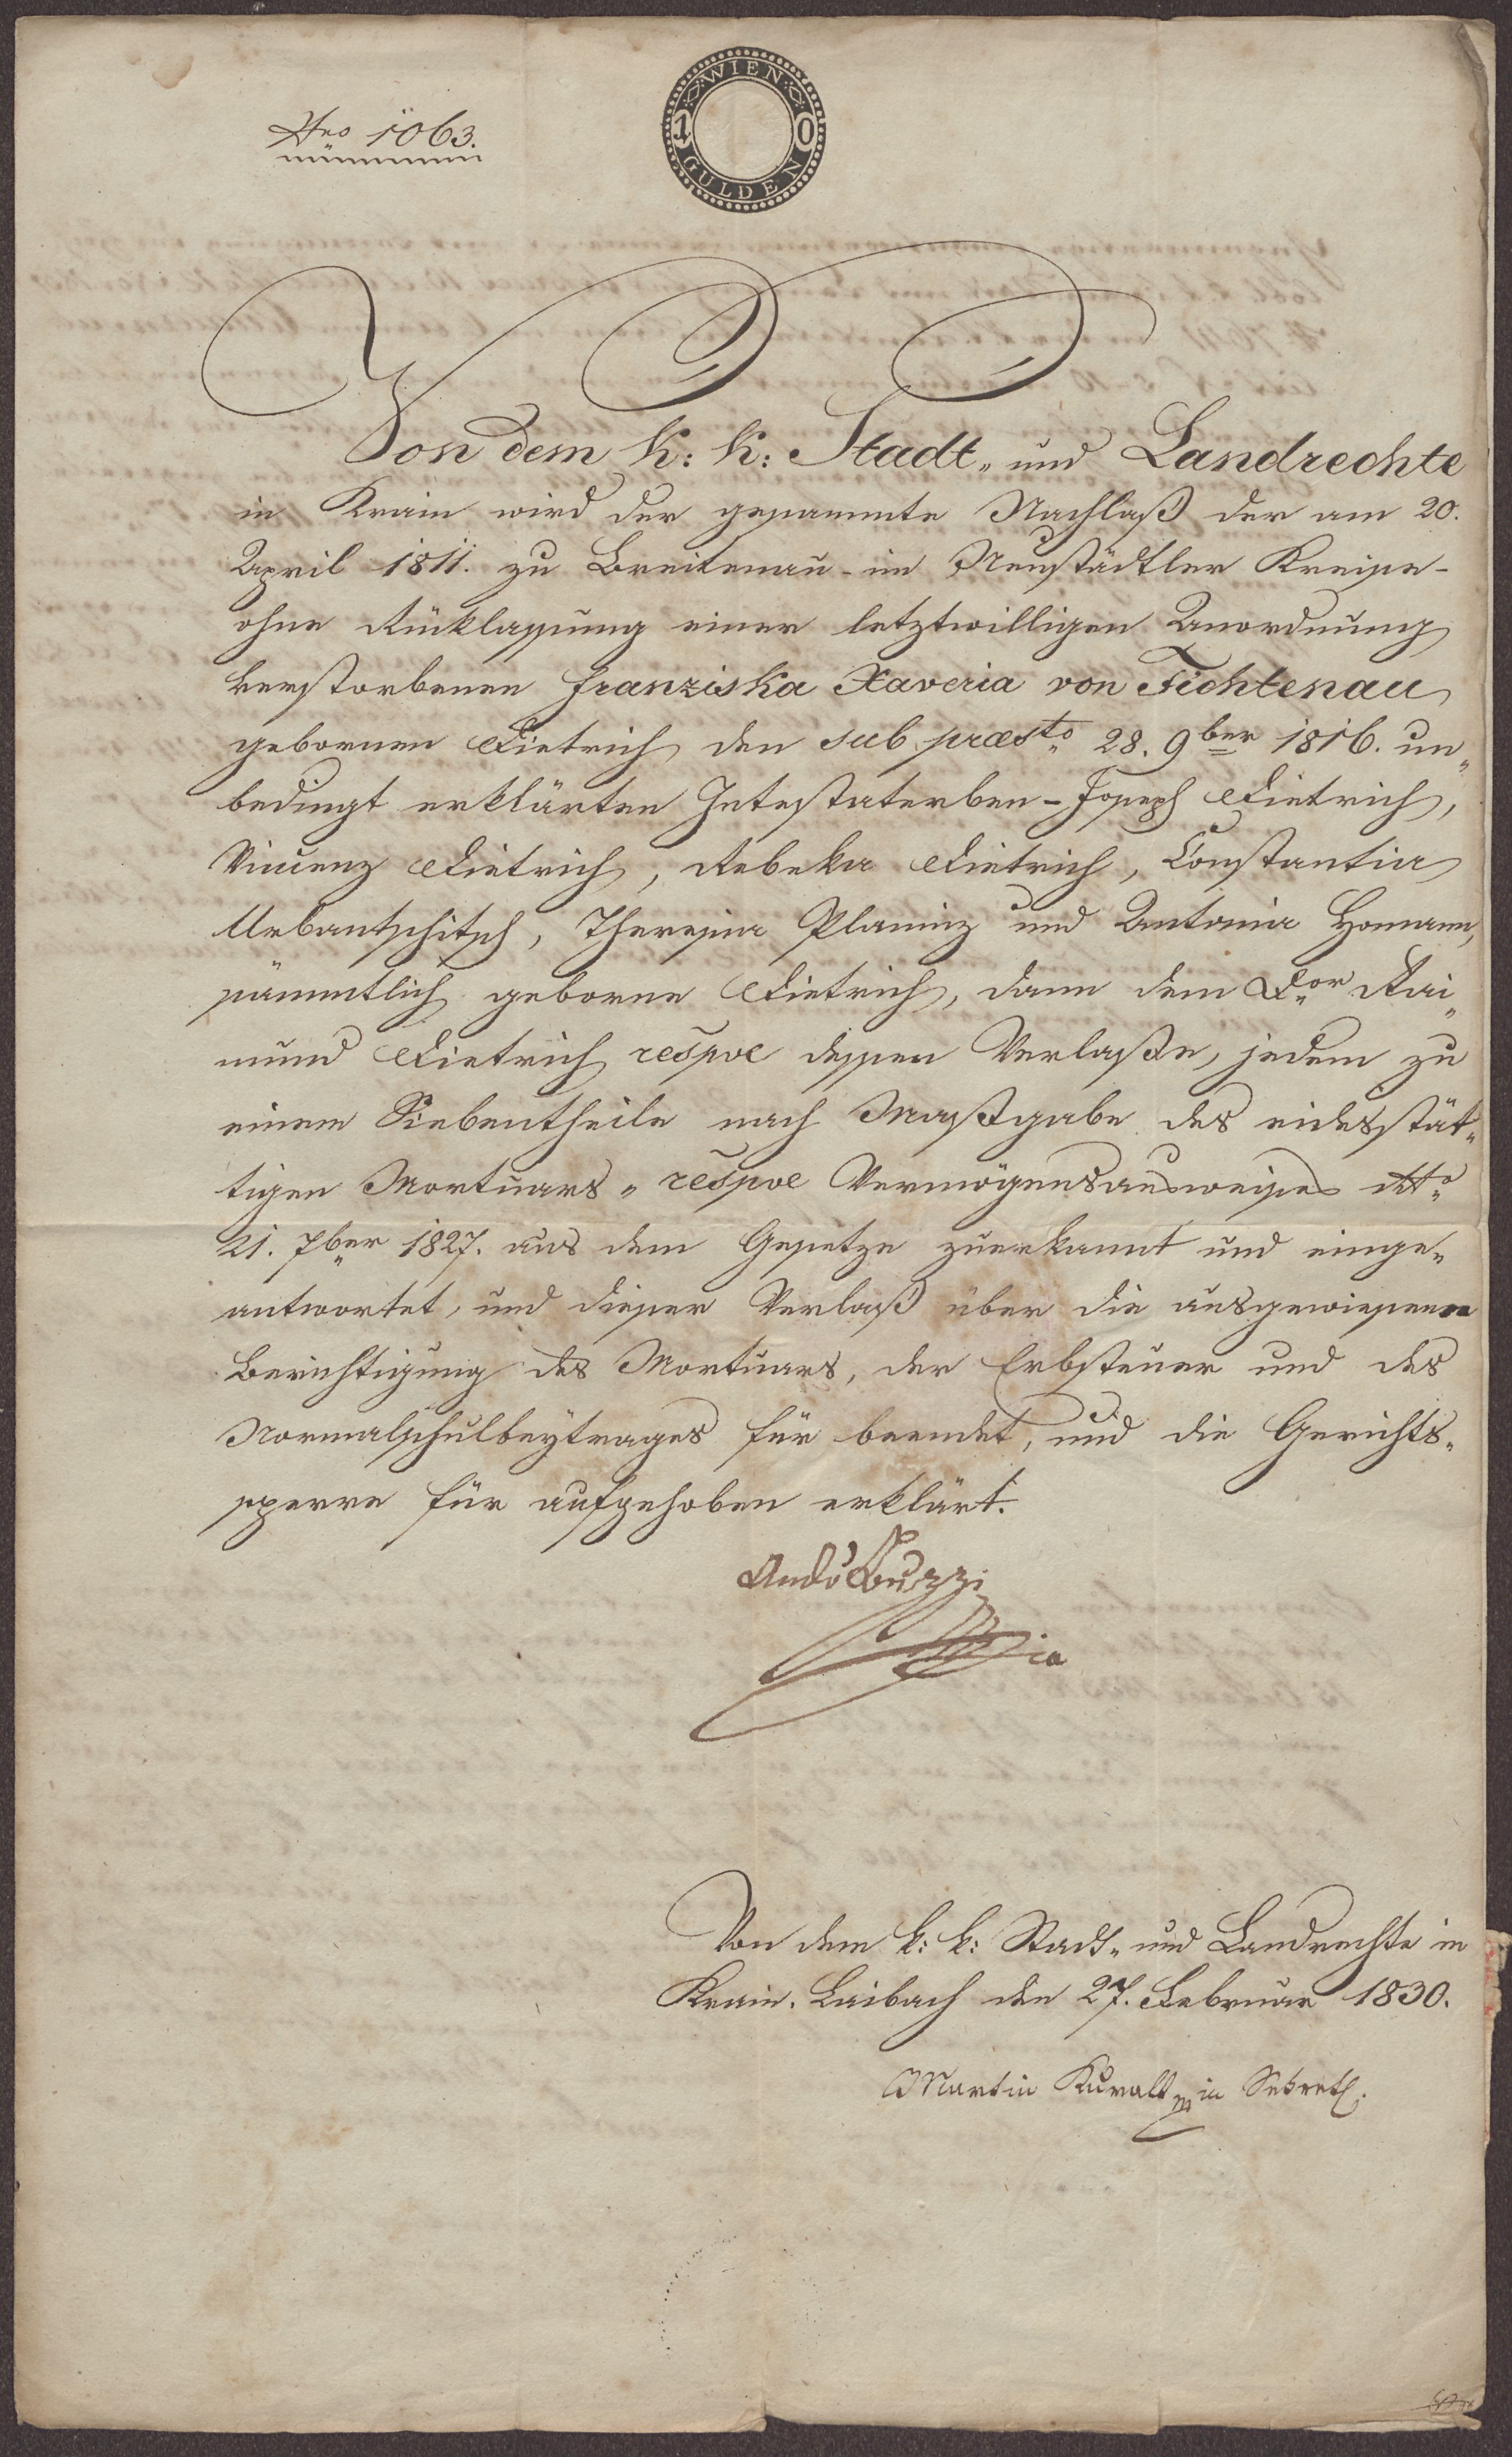 WIEN
10
GULDEN
Nro 1063.
Von dem k: k: Stadt„ und Landrechte
in Krain wird der gesammte Nachlaß der am 20.
April 1811. zu Breitenau - im Neustädtler Kreise -
ohne Rüklassung einer letztwilligen Anordnung
verstorbenen Franziska Xaveria von Fichtenau
gebornen Dietrich, den sub præsto 28. 9ber 1816. un„
bedingt erklärten Intestaterben - Joseph Dietrich,
Vincenz Dietrich, Rebeka Dietrich, Constantia
Urbantschitsch, Theresia Planinz und Antonia Homann,
sämmtlich geborne Dietrich, dann dem Dor Rai„
mund Dietrich respve dessen Verlaße, jedem zu
einem Siebentheile nach Maßgabe des eidesstät„
tigen Mortuars„ respve Vermögensausweises dtto
21. 7ber 1827. aus dem Gesetze zuerkannt und einge„
antwortet, und dieser Verlaß über die ausgewiesene
Berichtigung des Mortuars, der Erbsteuer und des
Normalschulbeytrages für beendet, und die Gerichts„
sperre für aufgehoben erklärt.
Buzzi
Von dem k: k: Stadt„ und Landrechte in
Krain. Laibach den 27. Februar 1830.
Martin Kuralt